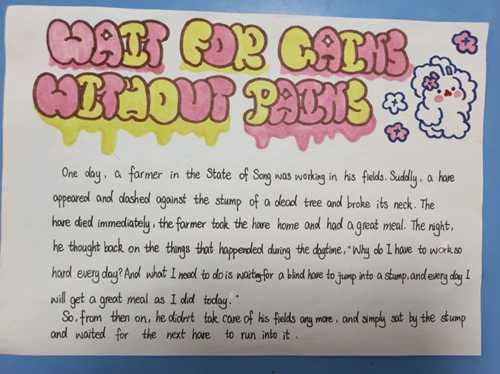 WAIT FOR GAINS
WITHOUT PAINS
One day, a farmer in the State of Song was working in his fields. Suddly, a hare
appeared and dashed against the stump of a dead tree and broke its neck. The
hare died immediately, the farmer took the hare home and had a great meal. The night,
he thought back on the things that happended during the daytime, "Why do I have to work so
hard every day? And what I need to do is waiting for a blind hare to jump into a stump, and every day I
will get a great meal as I did today."
So, from then on, he didn't tak care of his fields any more, and simply sat by the stump
and waited for the next hare to run into it.